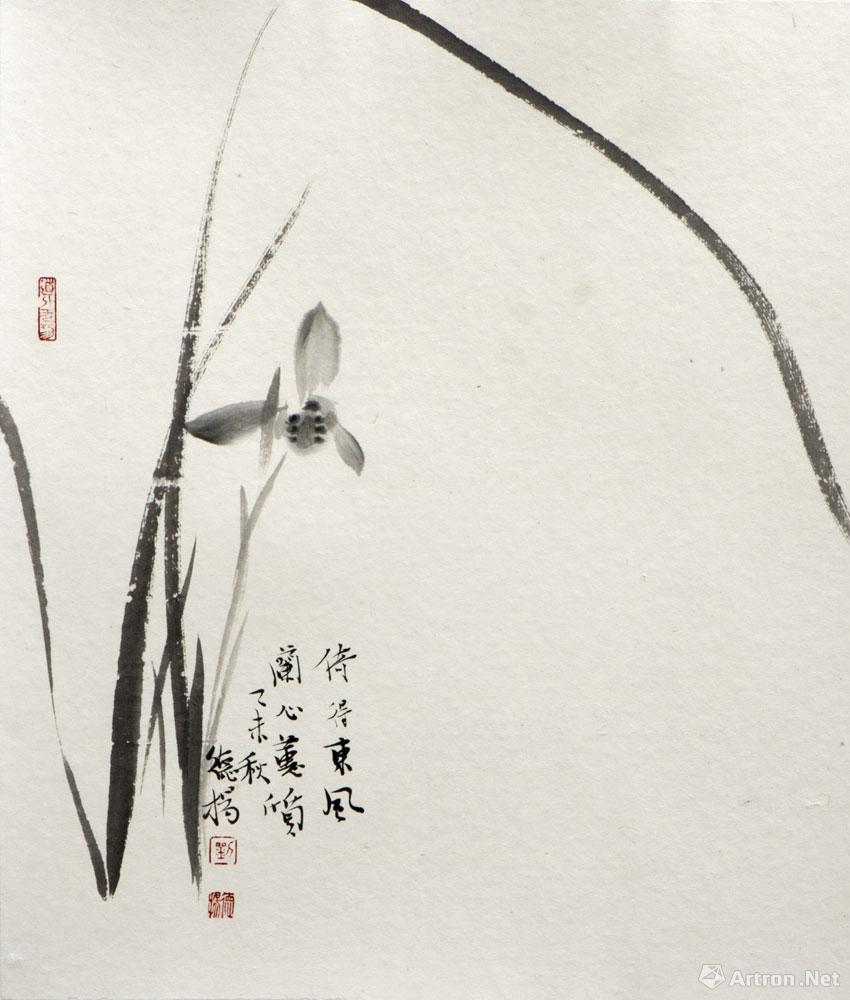 倚得東風
蘭心蕙質
乙未秋
德揚
劉
德揚
Artron.Net